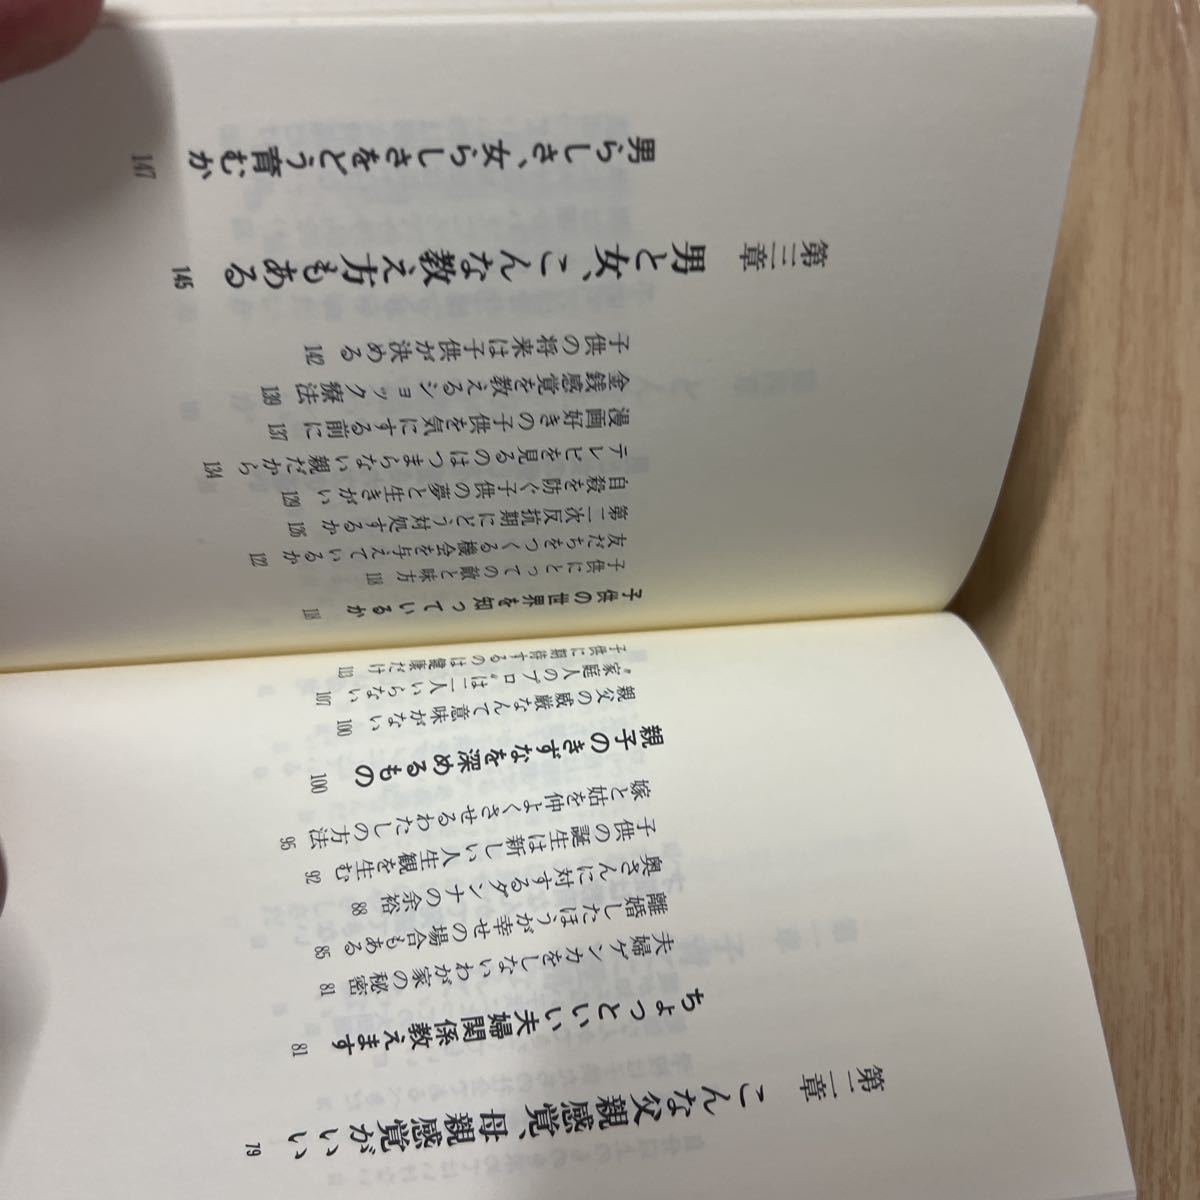 第二章 こんな父親感覚、母親感覚がいい 79
ちょっといい夫婦関係教えます 81
夫婦ゲンカをしないわが家の秘密 81
離婚したほうが幸せの場合もある 85
奥さんに対するダンナの余裕 88
子供の誕生は新しい人生観を生む 92
嫁と姑を仲よくさせるわたしの方法 95
親子のきずなを深めるもの 100
親父の威厳なんて意味がない 100
“家庭人のプロ”は二人いらない 107
子供に期待するのは健康だけ 113
子供の世界を知っているか 118
子供にとっての敵と味方 118
友だちをつくる機会を与えているか 122
第二次反抗期にどう対処するか 126
自殺を防ぐ子供の夢と生きがい 129
テレビを見るのはつまらない親だから 134
漫画好きの子供を気にする前に 137
金銭感覚を教えるショック療法 139
子供の将来は子供が決める 142
第三章 男と女、こんな教え方もある 145
男らしさ、女らしさをどう育むか 147